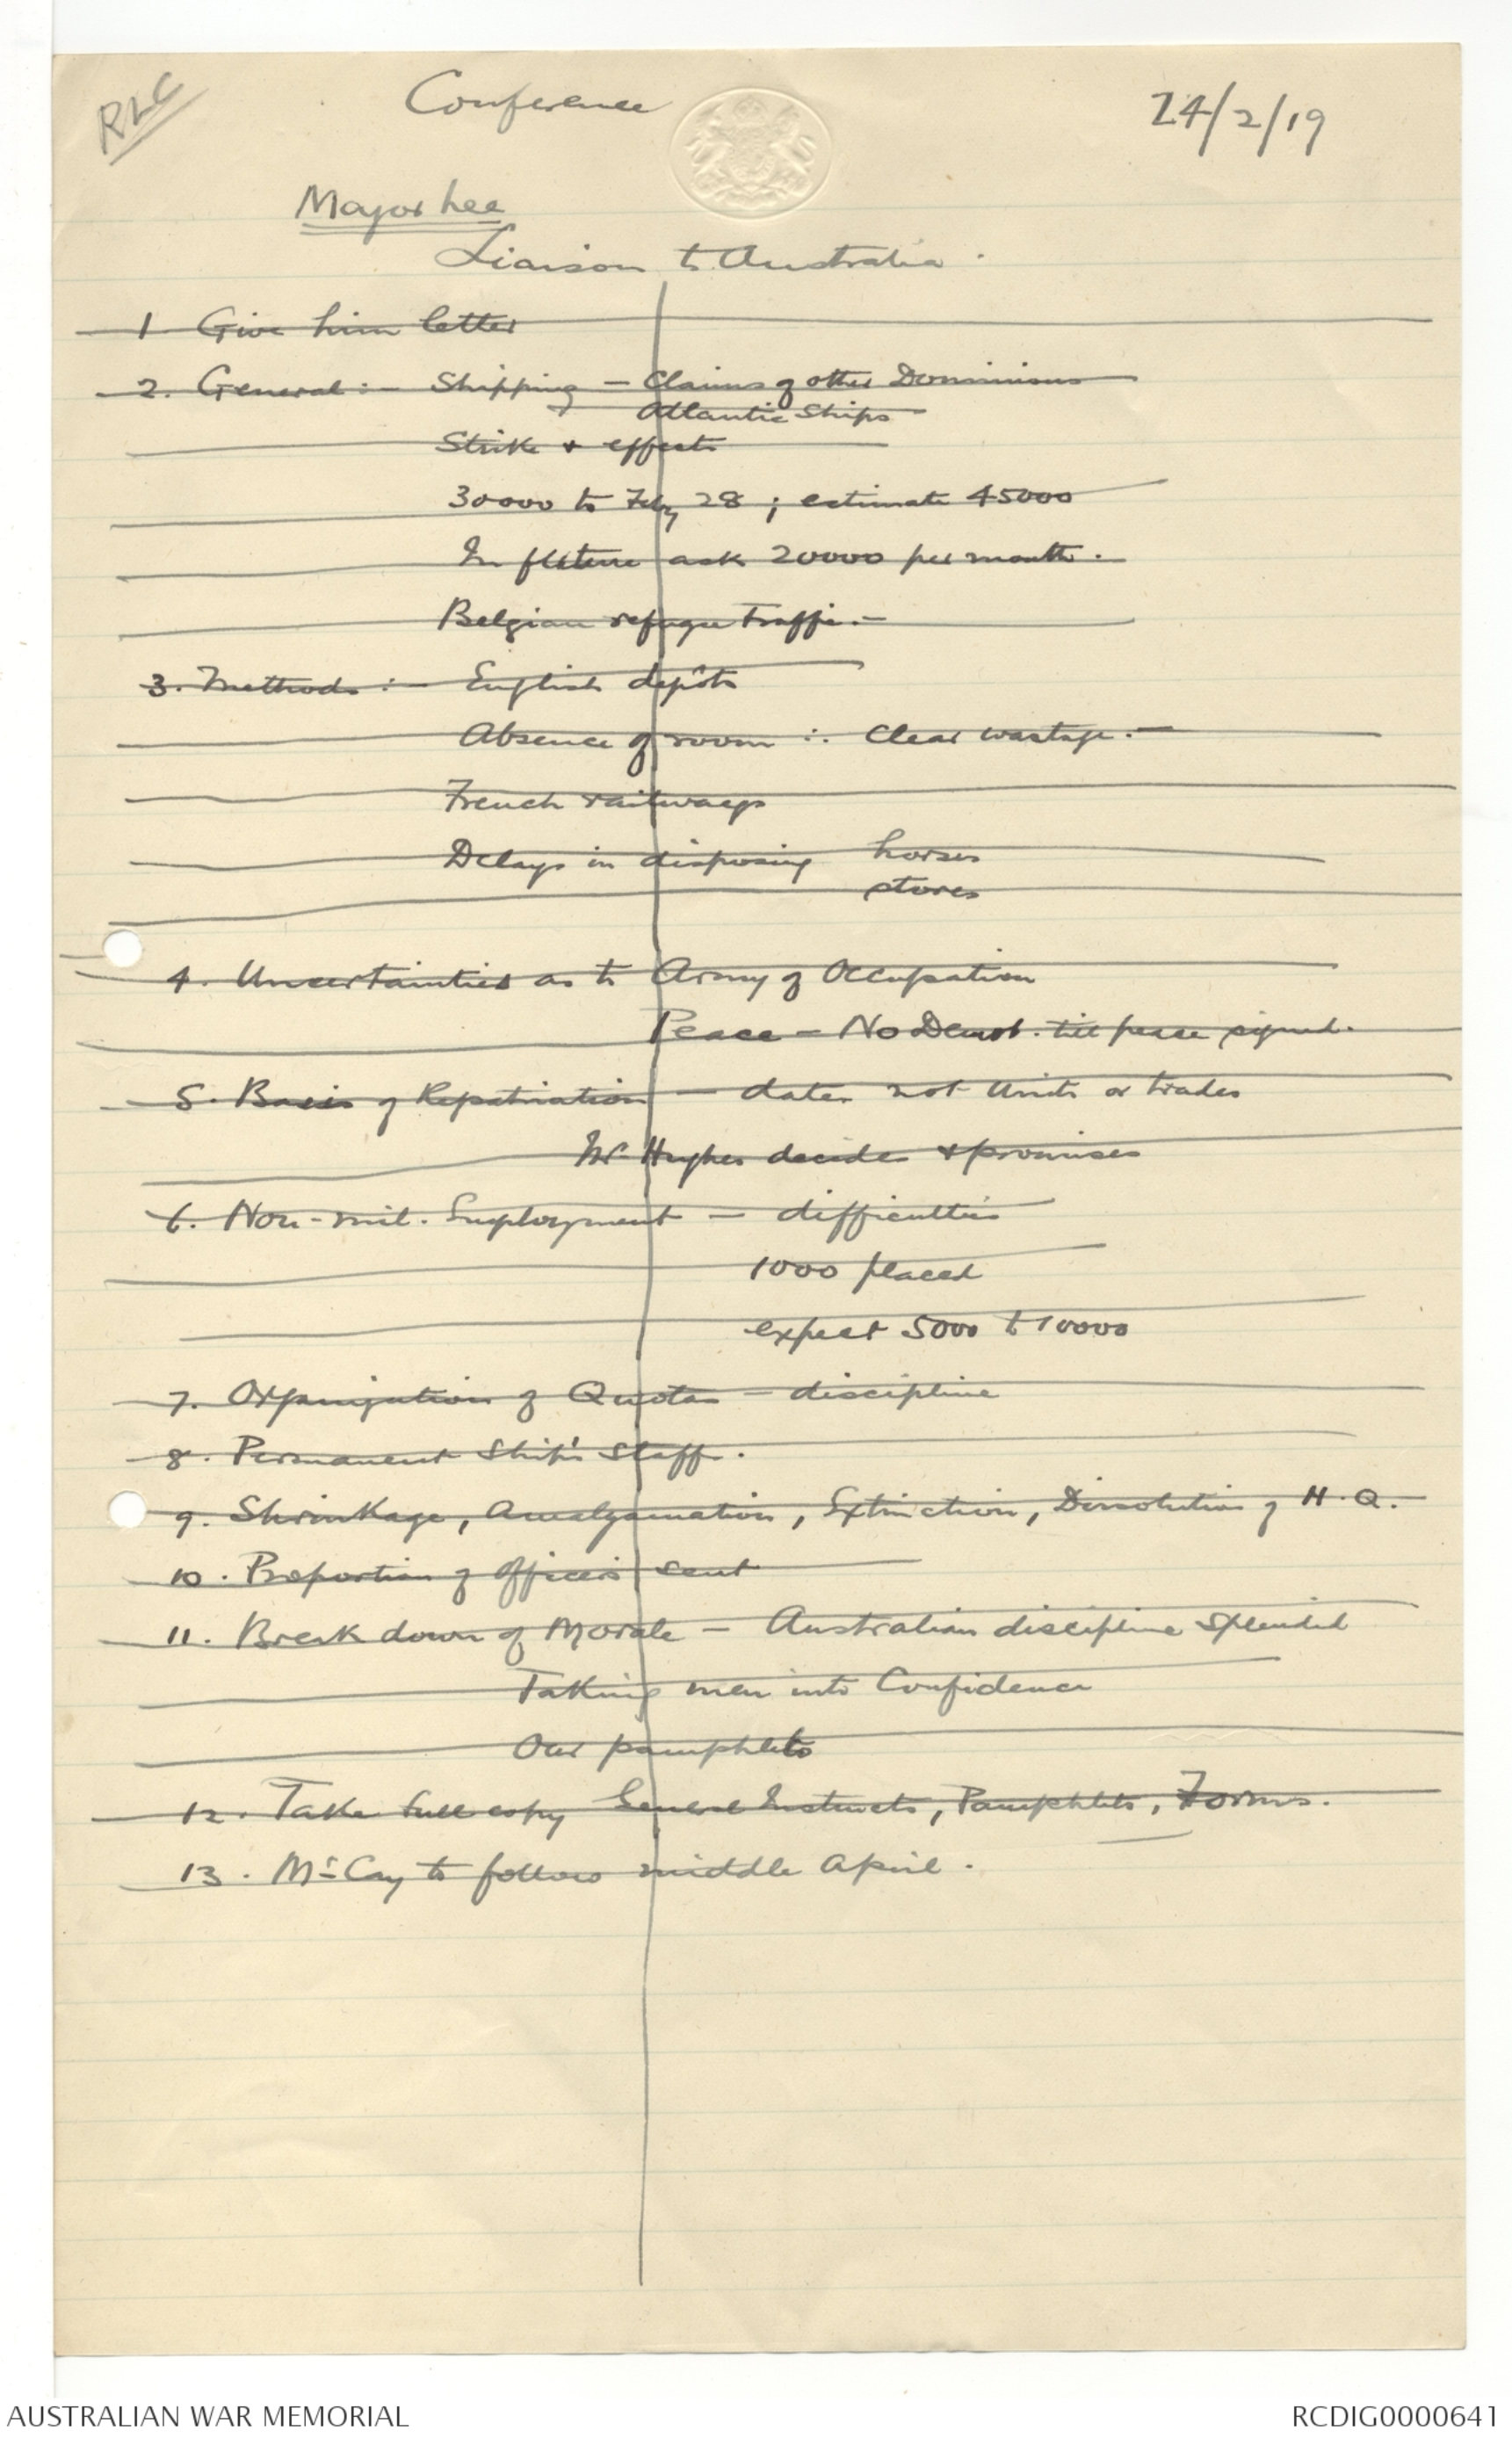 RLC
Conference
24/2/19
Major Lee
Liaison to Australia.
1. Give him letter
2. General :- Shipping - Claims of other Dominions
Atlantic Ships
Strike & effects
30000 to Feby 28 ; estimate 45000
In future ask 20000 per month.
Belgian refugee traffic.-
3. Methods :- English depôts
Absence of room ∴ Clear wastage.-
French railways
Delays in disposing horses
stores
4. Uncertainties as to Army of Occupation
Peace - No Demob. till peace signed.
5. Basis of Repatriation - dates not Units or trades
Mr Hughes decides & promises
6. Non-mil. Employment - difficulties
1000 placed
expect 5000 to 10000
7. Organization of Quotas - discipline
8. Permanent Ship's Staff.
9. Shrinkage, Amalgamation, Extinction, Dissolution of H.Q.
10. Proportion of Officers sent
11. Break down of Morale - Australian discipline splendid
Taking men into Confidence
Our pamphlets
12. Take full copy General Instructs, Pamphlets, Forms.
13. McCay to follow middle April.
AUSTRALIAN WAR MEMORIAL
RCDIG0000641